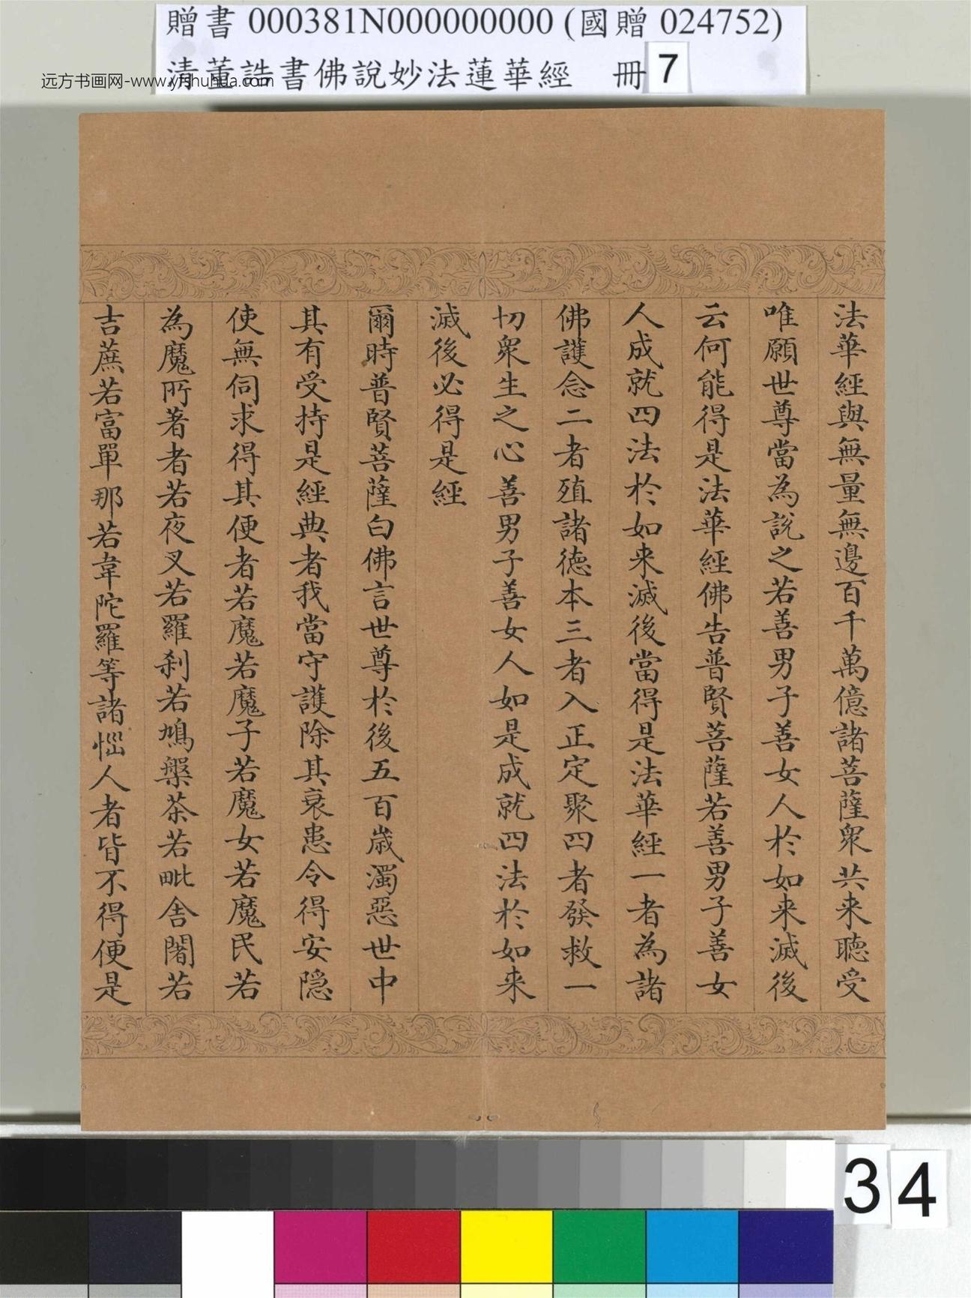 贈書 000381N000000000 (國贈 024752)
清董誥書佛說妙法蓮華經 冊 7
远方书画网-www.yfshuhua.com
法華經與無量無邊百千萬億諸菩薩衆共来聽受
唯願世尊當為說之若善男子善女人於如来滅後
云何能得是法華經佛告普賢菩薩若善男子善女
人成就四法於如来滅後當得是法華經一者為諸
佛護念二者殖諸德本三者入正定聚四者發救一
切衆生之心善男子善女人如是成就四法於如来
滅後必得是經
爾時普賢菩薩白佛言世尊於後五百歲濁惡世中
其有受持是經典者我當守護除其衰患令得安隱
使無伺求得其便者若魔若魔子若魔女若魔民若
為魔所著者若夜叉若羅刹若鳩槃茶若毗舍闍若
吉蔗若富單那若韋陀羅等諸惱人者皆不得便是
34